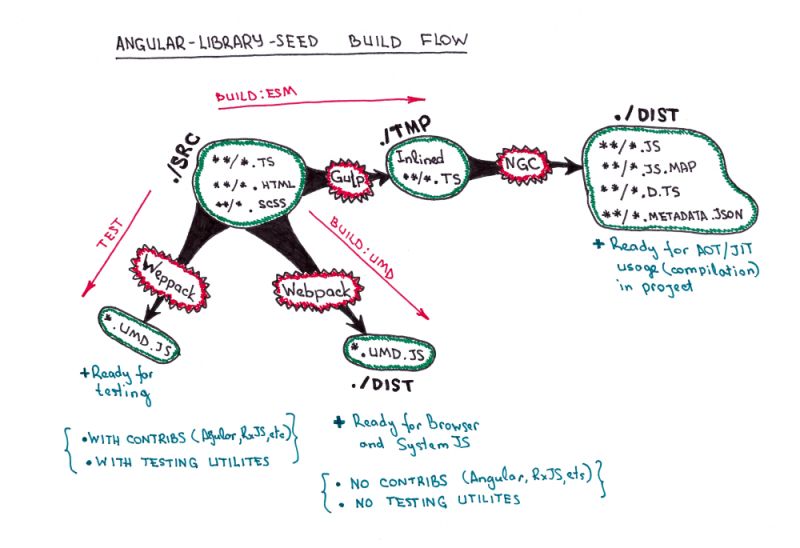 ANGULAR-LIBRARY-SEED BUILD FLOW
BUILD:ESM
./SRC
**/*.TS
**/*.HTML
**/*.SCSS
Gulp
./TMP
Inlined
**/*.TS
NGC
./DIST
**/*.JS
**/*.JS.MAP
**/*.D.TS
**/*.METADATA.JSON
+ Ready for AOT/JIT
usage (compilation)
in project
TEST
Weppack
*.UMD.JS
+ Ready for
testing
• WITH CONTRIBS (Agular, RxJS, etc)
• WITH TESTING UTILITES
BUILD:UMD
Webpack
*.UMD.JS
./DIST
+ Ready for Browser
and System JS
• NO CONTRIBS (Angular, RxJS, ets)
• NO TESTING UTILITES